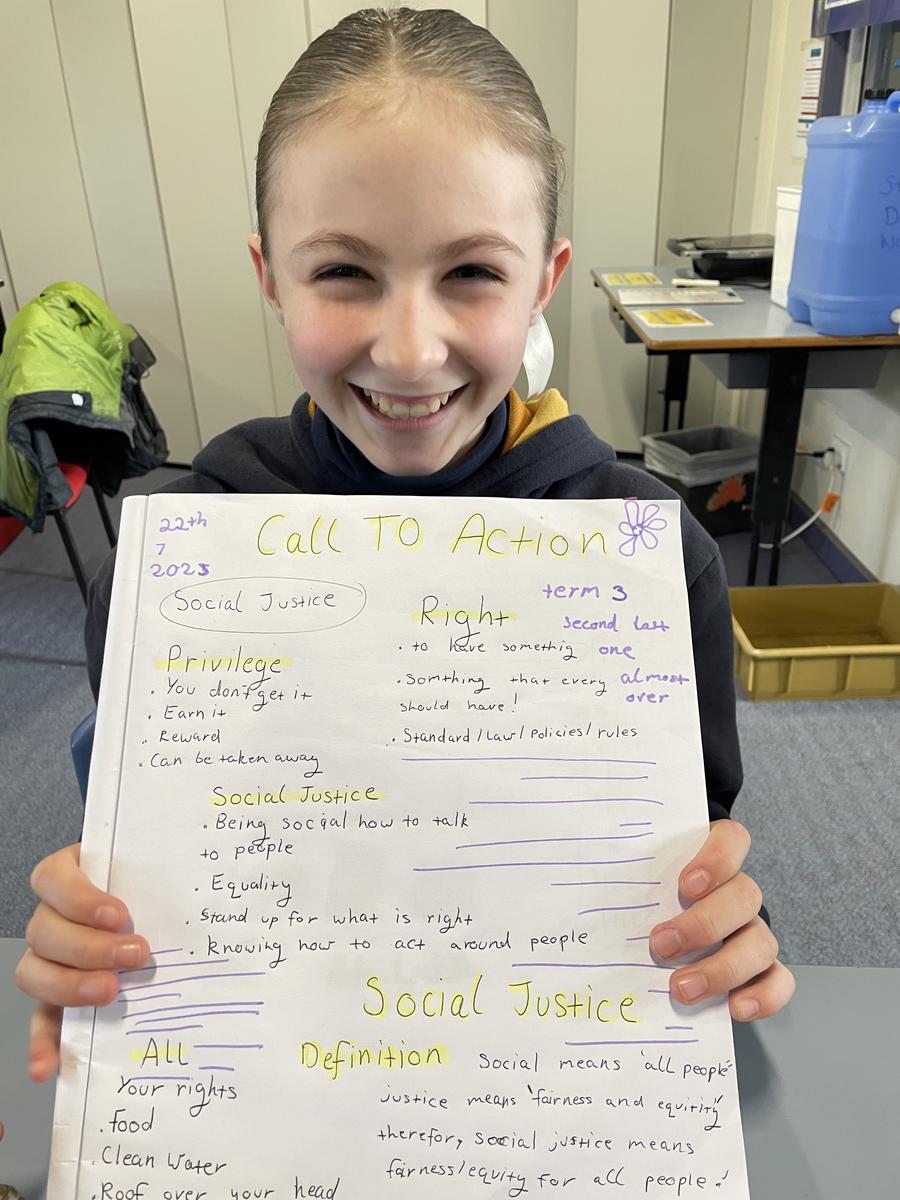 22th
7
2025
Call TO Action
Social Justice
term 3
second last
one
almost
over
Privilege
. You don't get it
. Earn it
. Reward
. Can be taken away
Right
. to have somethig
. Somthing that every
should have!
. Standard/Law/Policies/rules
Social Justice
. Being social how to talk
to people
. Equality
. Stand up for what is right
. knowing how to act around people
Social Justice
All
Your rights
. Food
. Clean Water
. Roof over your head
Definition Social means 'all people'
justice means 'fairness and
therefor, social justice means
fairness/equity for all people.'